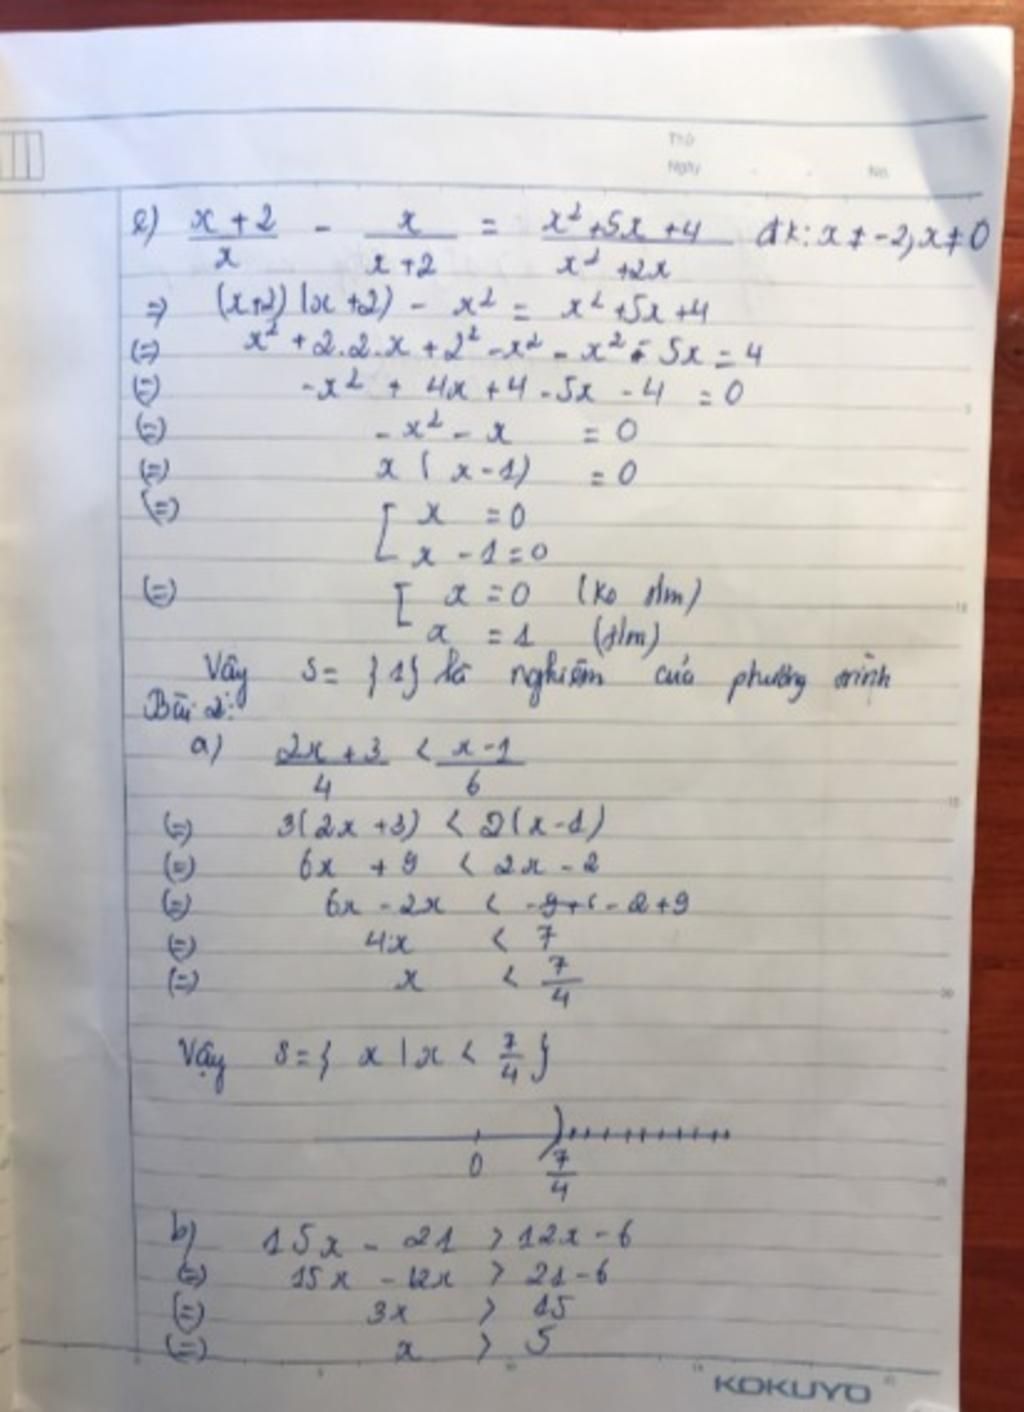 Thứ
Ngày . . No.
e) (x + 2)/x - x/(x + 2) = (x² + 5x + 4)/(x² + 2x) đk: x ≠ -2, x ≠ 0
=> (x+2)(x+2) - x² = x² + 5x + 4
(=) x² + 2.2.x + 2² - x² - x² - 5x = 4
(=) -x² + 4x + 4 - 5x - 4 = 0
(=) -x² - x = 0
(=) x(x-1) = 0
(=) [ x = 0
x - 1 = 0
(=) [ x = 0 (ko tlm)
x = 1 (tlm)
Vậy S = {1} là nghiệm của phương trình
Bài 2:
a) (2x + 3)/4 < (x - 1)/6
(=) 3(2x + 3) < 2(x - 1)
(=) 6x + 9 < 2x - 2
(=) 6x - 2x < - 2 + 9
(=) 4x < 7
(=) x < 7/4
Vậy S = { x | x < 7/4 }
0 7/4
b) 15x - 21 > 12x - 6
(=) 15x - 12x > 21 - 6
(=) 3x > 15
(=) x > 5
KOKUYO